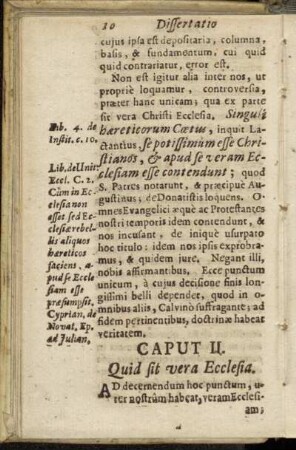 10 Dissertatio
cujus ipsa est depositaria, columna,
basis, & fundamentum, cui quid
quid contrariatur, error est.
Non est igitur alia inter nos, ut
propriè loquamur, controversia,
præter hanc unicam; qua ex parte
sit vera Christi Ecclesia. Singuli
hæreticorum Cœtus, inquit La-
ctantius, se potissimum esse Chri-
stianos, & apud se veram Ec-
clesiam esse contendunt; quod
S. Patres notarunt, & præcipuè Au-
gustinus; de Donatistis loquens. O-
mnes Evangelici æquè ac Protestantes
nostri temporis idem contendunt, &
nos incusant, de iniquè usurpato
hoc titulo: idem nos ipsis exprobra-
mus, & quidem jure. Negant illi,
nobis affirmantibus. Ecce punctum
unicum, à cujus decisione finis lon-
gissimi belli dependet, quod in o-
mnibus aliis, Calvinò suffragante; ad
fidem pertinentibus, doctrinæ habeat
veritatem.
Lib. 4. de
Instit. c. 10.
Lib. de Unit.
Eccl. C. 2.
Cùm in Ec-
clesia non
esset sed Ec-
clesiæ rebel-
lis aliquos
hæreticos
faciens, a-
pud se Eccle-
siam esse
præsumpsit.
Cyprian. de
Novat. Ep.
ad Julian,
CAPUT II.
Quid sit vera Ecclesia.
AD decernendum hoc punctum, u-
ter nostrûm habeat, veram Ecclesi-
am;